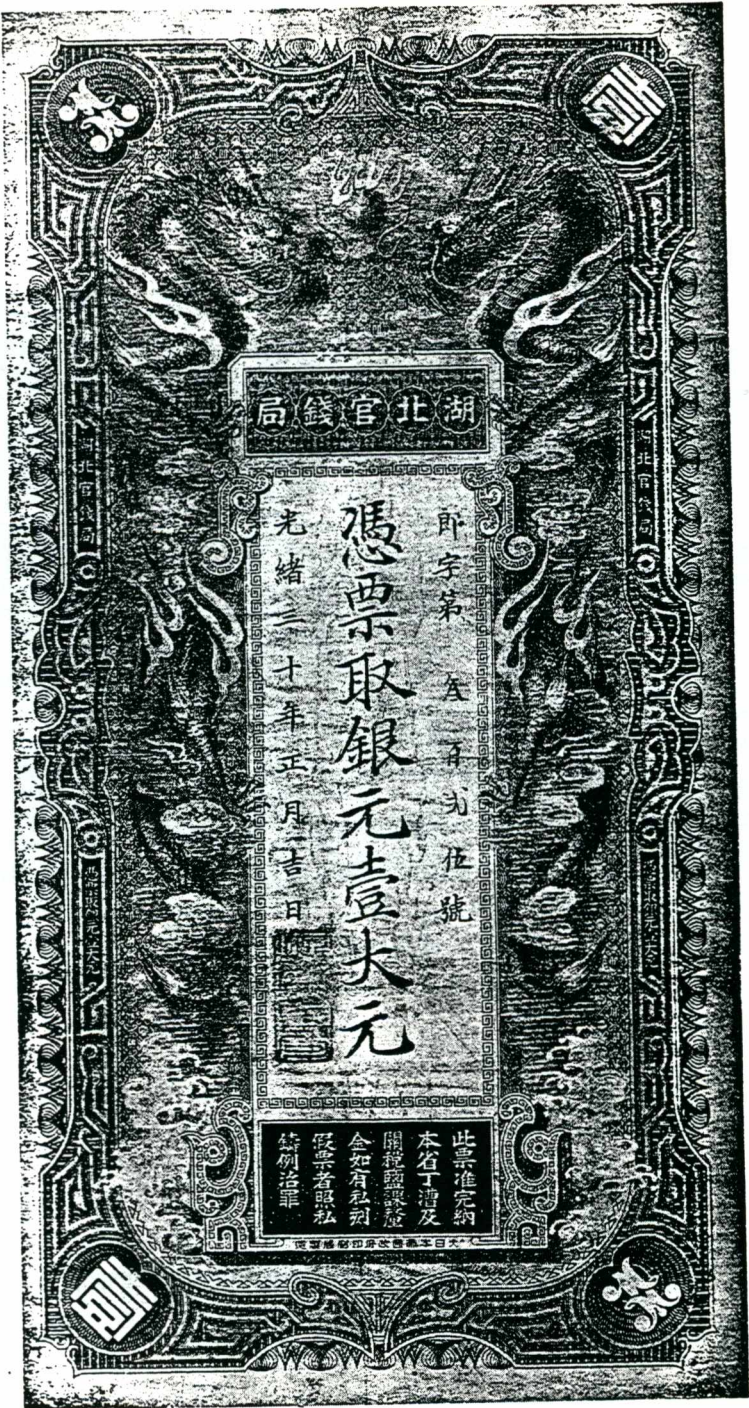 壹
元
湖北官錢局
湖北官錢局
湖北官錢局
即字第叁百弍伍號
憑票取銀元壹大元
光緒三十年正月吉日
此票准完納
本省丁漕及
關稅鹽課釐
金如有私刻
假票者照私
鑄例治罪
大日本帝國政府印刷局製造
元
壹